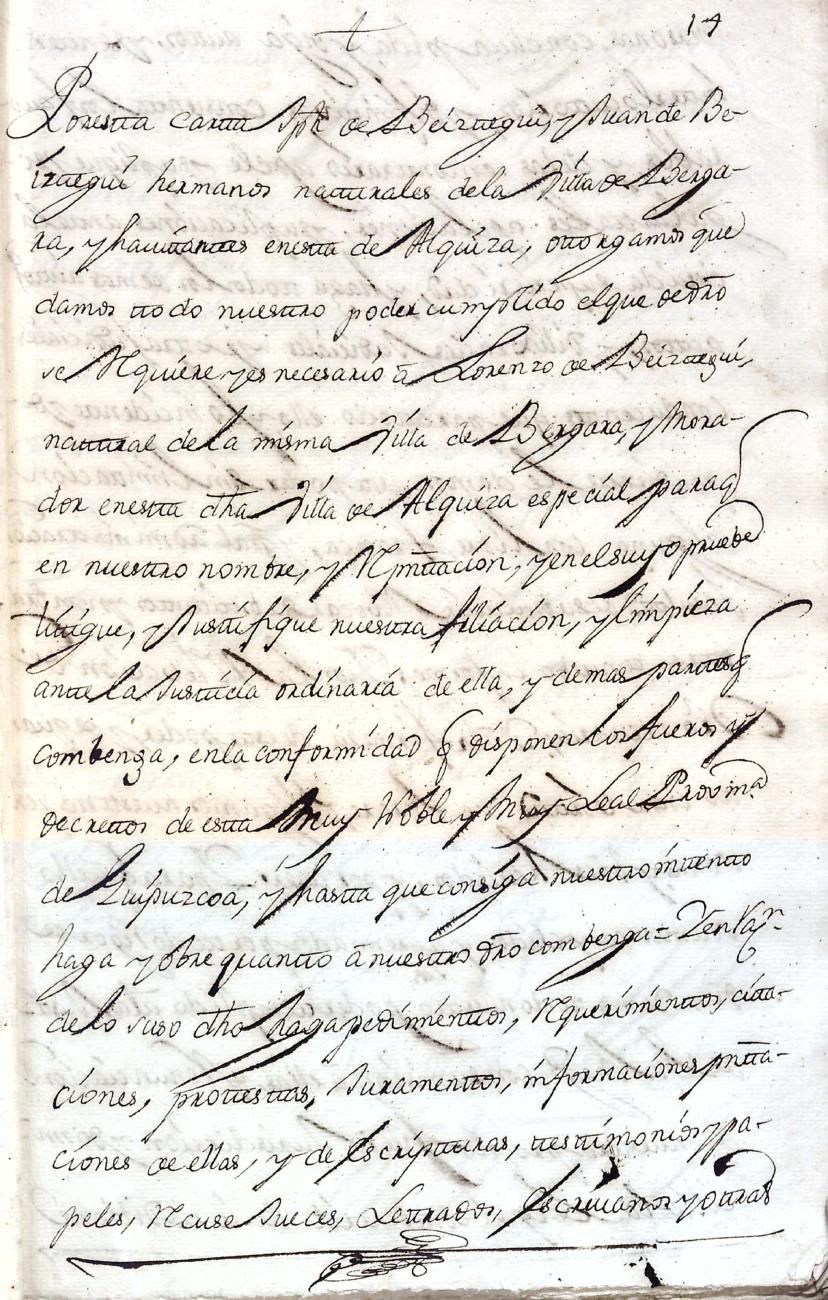 14
Por esta carta Jph de Beiztegui, y Juan de Be-
iztegui hermanos naturales de la Villa de Berga-
ra, y hauitantes en esta de Alquiza, otorgamos que
damos todo nuestro poder cumplido el que de dro
se Requiere y es necesario a Lorenzo de Beiztegui,
natural de la misma Villa de Bergara, y Mora-
dor en esta dha Villa de Alquiza especial para q
en nuestro nombre, y Rpntacion, y en el suyo pruebe
litigue, y Justifique nuestra filiacion, y limpieza
ante la Justicia ordinaria de ella, y demas partes q
combenga, en la conformidad q disponen los fueros y
decretos de esta Muy Noble y Muy Leal Provina
de Guipuzcoa, y hasta que consiga nuestro intento
haga y obre quanto a nuestro dro combenga = Y en Raon
de lo suso dho haga pedimentos, Requerimientos, cita-
ciones, protestas, Juramentos, informaciones pnta-
ciones de ellas, y de Escripturas, testimonios y pa-
peles, Recuse Jueces, Letrados, Escriuanos y otras